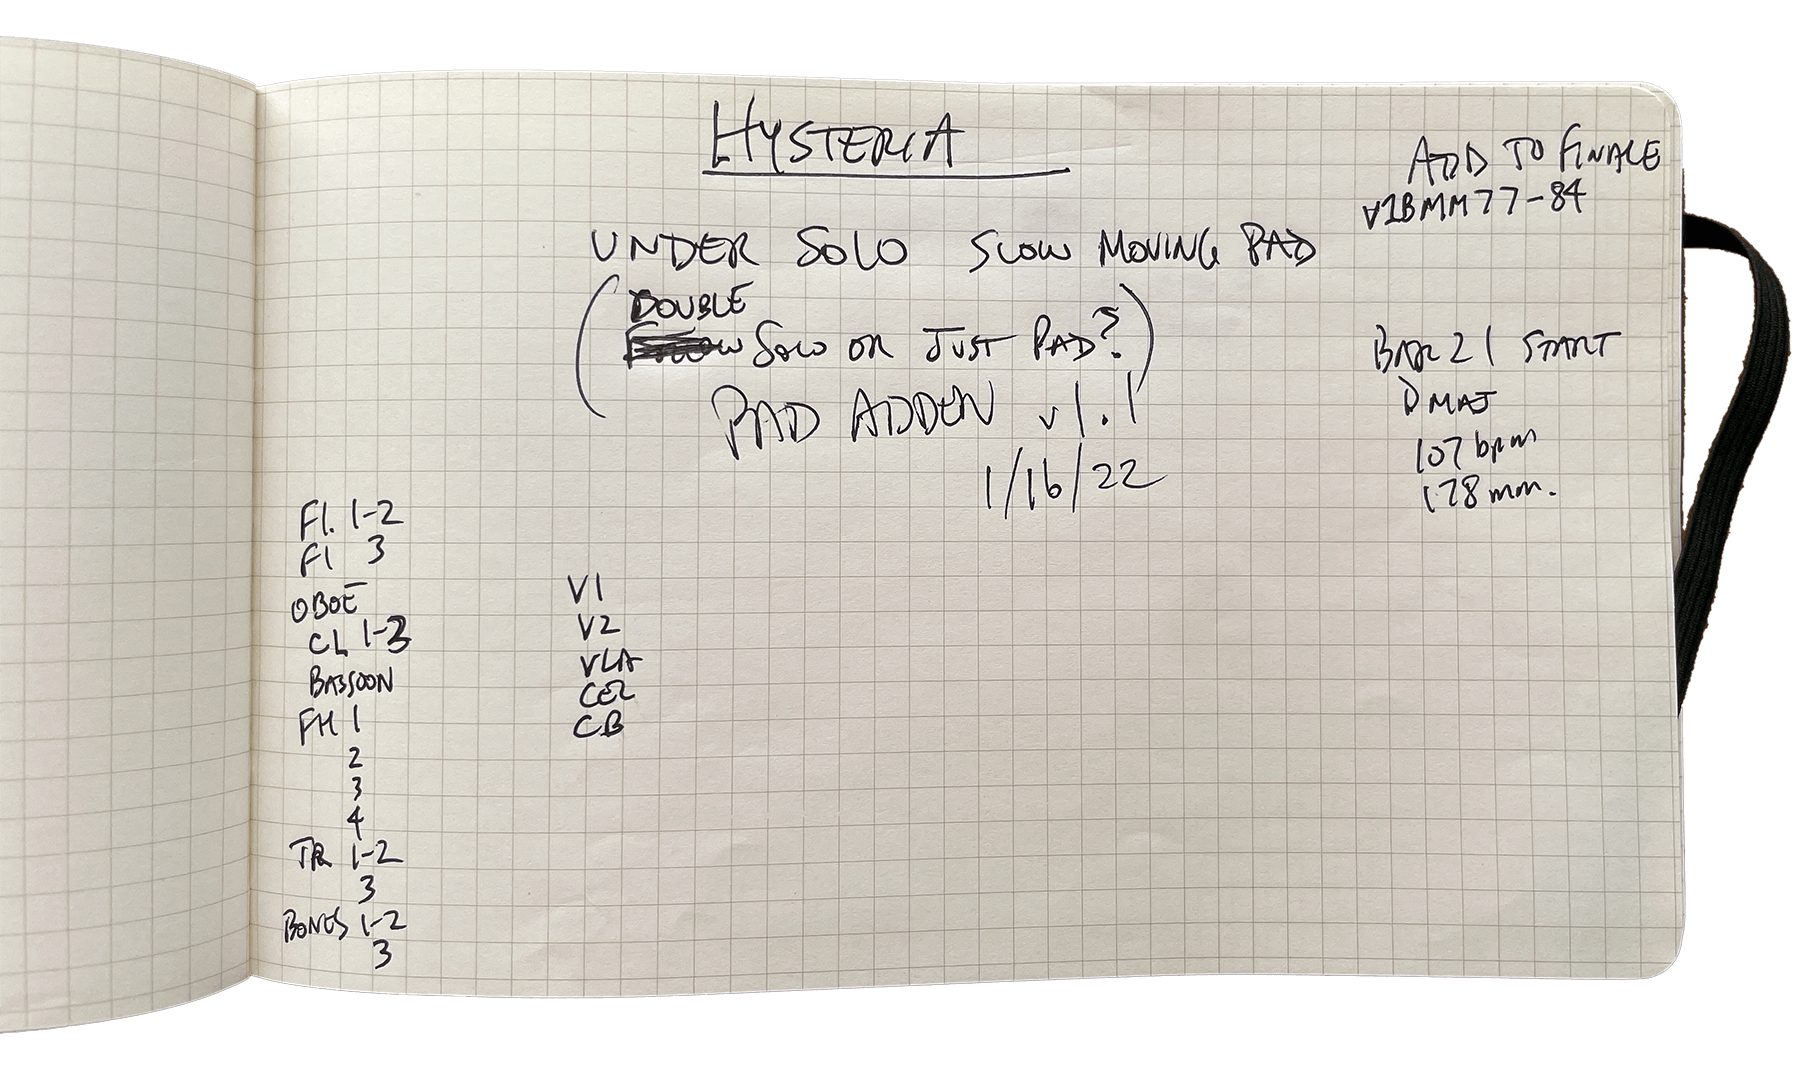 HYSTERIA
ADD TO FINALE
V1BMM77-84
UNDER SOLO SLOW MOVING PAD
(DOUBLE
SOLO OR JUST PAD?)
PAD ADDEN v1.1
1/16/22
BAR 21 START
D MAJ
107 bpm
178 mm.
Fl. 1-2
Fl 3
OBOE
CL 1-3
BASSOON
FH 1
2
3
4
TR 1-2
3
BONES 1-2
3
V1
V2
VLA
CEL
CB